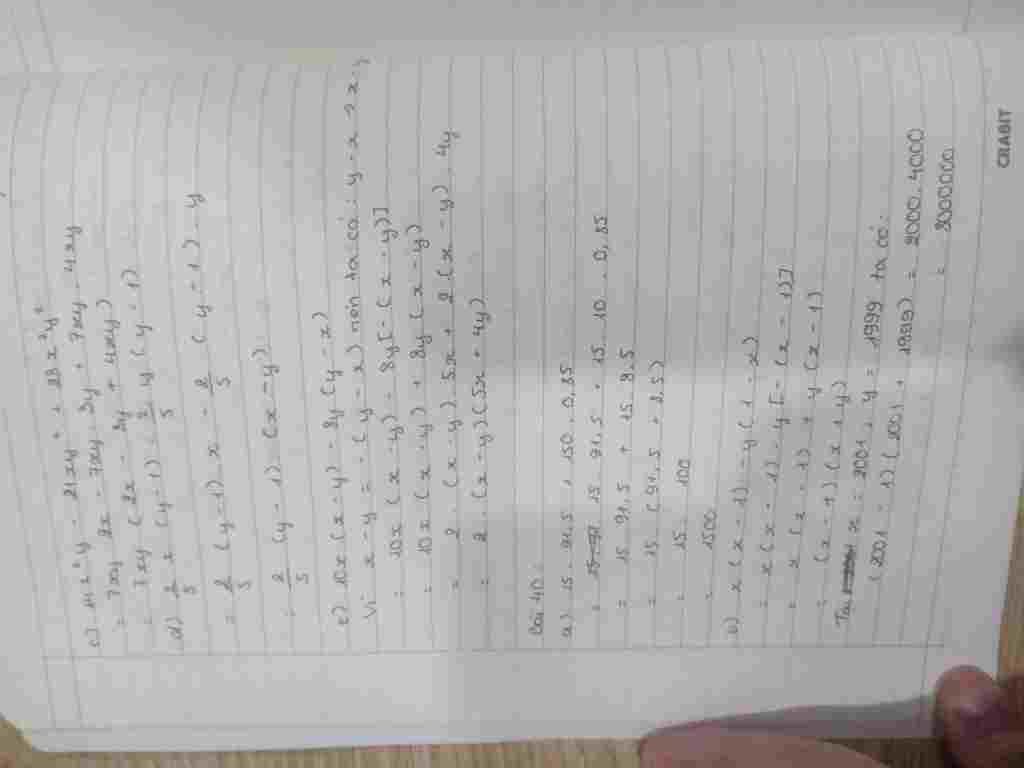 c) 14x²y - 21xy² + 28x²y²
= 7xy . 2x - 7xy . 3y + 7xy . 4xy
= 7xy (2x - 3y + 4xy)
d) 2/5 x (y - 1) - 2/5 y (y - 1)
= 2/5 (y - 1) . x - 2/5 (y - 1) . y
= 2/5 (y - 1) . (x - y)
e) 10x (x - y) - 8y (y - x)
Vì x - y = - (y - x) nên ta có: y - x = x - y
= 10x (x - y) - 8y [- (x - y)]
= 10x (x - y) + 8y (x - y)
= 2 . (x - y) . 5x + 2 (x - y) . 4y
= 2 . (x - y) (5x + 4y)
Bài 40:
a) 15 . 91,5 + 150 . 0,85
= 15 . 91,5 + 15 . 10 . 0,85
= 15 . 91,5 + 15 . 8,5
= 15 (91,5 + 8,5)
= 15 . 100
= 1500
b) x (x - 1) - y (1 - x)
= x (x - 1) - y [- (x - 1)]
= x (x - 1) + y (x - 1)
= (x - 1) (x + y)
Tại x = 2001, y = 1999 ta có:
(2001 - 1) (2001 + 1999) = 2000 . 4000
= 8000000
CRABIT